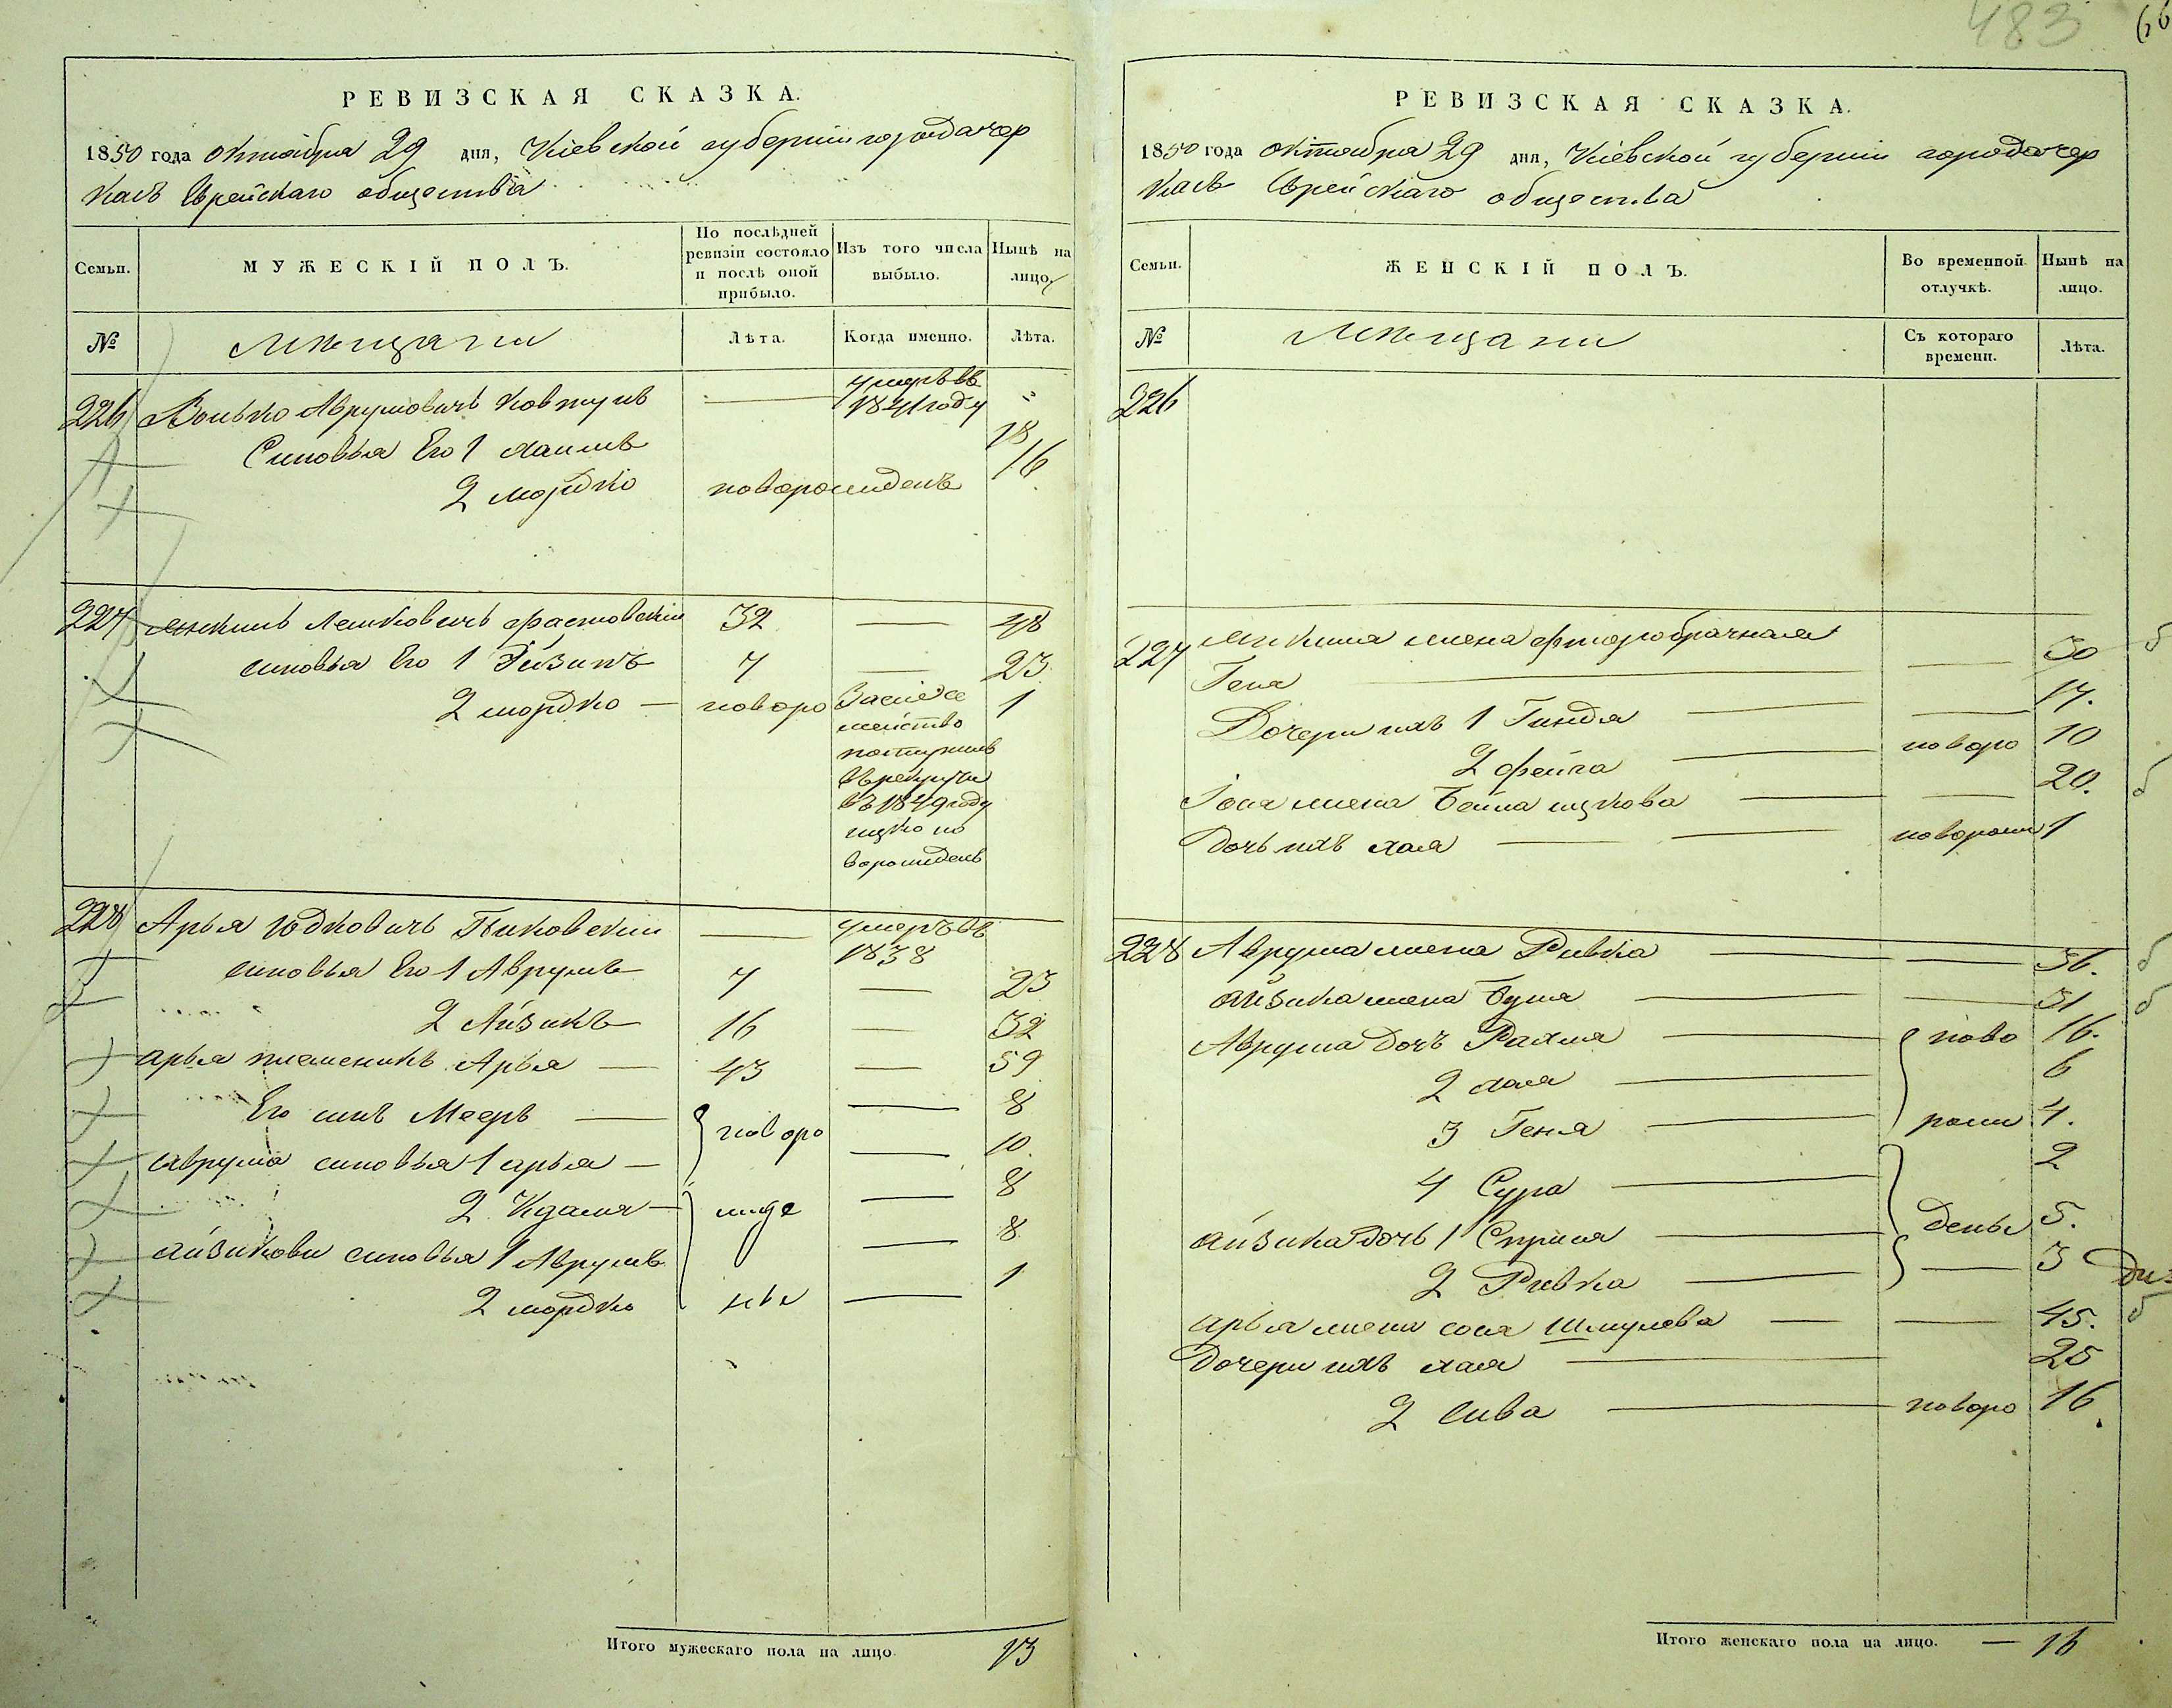 483
РЕВИЗСКАЯ СКАЗКА.
1850 года Октября 29 дня, Кіевской губерніи города Чер
касъ Еврейскаго общества
Семьи.
МУЖЕСКІЙ ПОЛЪ.
По послѣдней ревизіи состояло и послѣ оной прибыло.
Изъ того числа выбыло.
Нынѣ на лицо.
№
Мѣщани
Лѣта.
Когда именно.
Лѣта.
226 Волько Аврумовичъ Ковтунъ — умеръ въ 1841 году "
Синовья Его 1 Хаимъ 18
2 Мордко новорожденъ 16
227 Лейковичъ Фастовскій 32 — 48
синовья Его 1 7 — 23
2 мордко — новоро 1
за сіе се
мейство
поступилъ
въ рекруты
въ 1849 году
ицко но
ворожденъ
228 Арья Юдковичъ Быковскій — умеръ въ 1838
синовья Его 1 Аврумъ 7 — 23
2 Айзикъ 16 — 32
Арья племеникъ Арья — 43 — 59
Его синъ Мееръ — новоро — 8
Аврума синовья 1 арья — — 10.
2 — жде — 8
Айзикови синовья 1 Аврумъ — 8
2 мордко ны — 1
Итого мужескаго пола на лицо 13
РЕВИЗСКАЯ СКАЗКА.
1850 года Октября 29 дня, Кіевской губерніи города Чер
касъ Еврейскаго общества
Семьи.
ЖЕНСКІЙ ПОЛЪ.
Во временной отлучкѣ.
Нынѣ на лицо.
№
Мѣщани
Съ котораго времени.
Лѣта.
226
227 жена фторобрачная
Гена — — 30
Дочери ихъ 1 Гинда — — 17.
2 фейга — новоро 10
жена Бейла ицкова — — 20.
Дочь ихъ хая — новорож 1
228 Аврума жена Ривка — — 36.
Айзика жена Бума — — 31
Аврума дочъ Рахля — ново 16.
2 хая — 6
3 Геня — рож 4.
4 Сура — 2
Айзика дочь 1 Сприня — дены 5.
2 Ривка — — 3
Арья жена сося Шмулева — — 45.
Дочери ихъ хая — 25
2 Сива — новоро 16
Итого женскаго пола на лицо. — 16